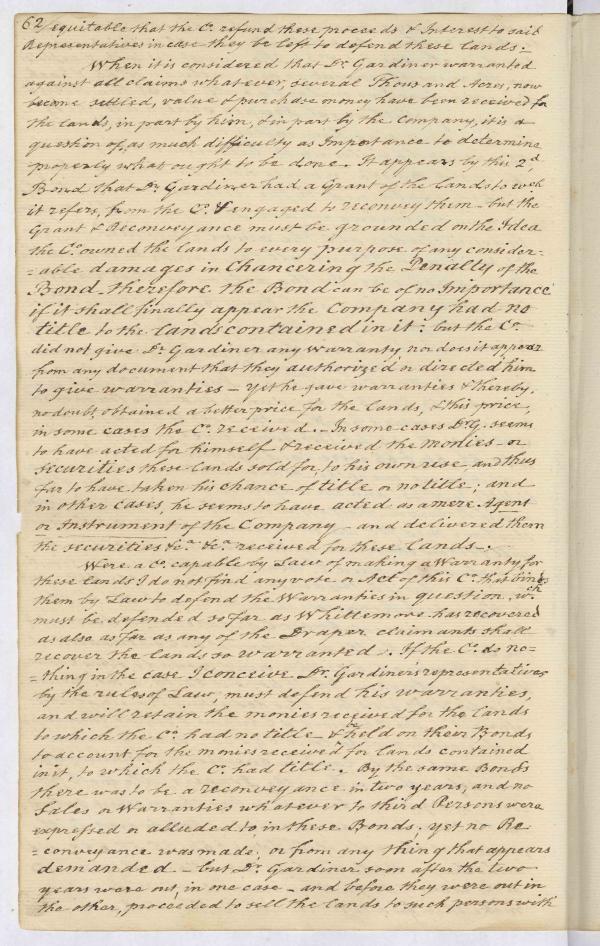 62/ equitable that the Co. refund these proceeds & Interest to said
Representatives in case they be left to defend these lands.
When it is considered that Dr. Gardiner warranted
against all claims whatever, several Thousand Acres, now
become settled, value & purchase money have been received for
the lands, in part by him, & in part by the Company, it is a
question of, as much difficulty as Importance to determine
properly what ought to be done. It appears by this 2d.
Bond that Dr. Gardiner had a Grant of the lands to wch
it refers, from the Co. & engaged to reconvey them - but the
Grant & Reconveyance must be grounded on the Idea
the Co. owned the lands to every purpose of any consider=
=able damages in Chancering the Penalty of the
Bond therefore the Bond can be of no Importance
if it shall finally appear the Company had no
title to the lands contained in it: but the Co.
did not give Dr. Gardiner any warranty nor does it appear
from any document that they authorized or directed him
to give warranties - yet he gave warranties & thereby,
no doubt obtained a better price for the lands, & this price,
in some cases the Co. received. In some cases Dr. G. seems
to have acted for himself & received the monies or
securities these lands sold for, to his own use - and thus
far to have taken his chance of title or no title; and
in other cases, he seems to have acted as a mere Agent
or Instrument of the Company - and delivered them
the securities &ca. &ca. received for these lands -.
Were a Co. capable by Law of making a Warranty for
these lands I do not find any vote or Act of this Co. that binds
them by Law to defend the Warranties in question wch
must be defended so far as Whittemore has recovered
as also as far as any of the Draper claimants shall
recover the lands so warranted. If the Co. do no=
=thing in the case I conceive Dr. Gardiner's representatives
by the rules of Law, must defend his warranties,
and will retain the monies received for the lands
to which the Co. had no title - & be held on their Bonds
to account for the monies received for lands contained
in it, to which the Co. had title. By the same Bonds
there was to be a reconveyance in two years, and no
Sales or Warranties whatever to third Persons were
expressed or alluded to in these Bonds. yet no Re
=conveyance was made, or from any thing that appears
demanded - but Dr. Gardiner soon after the two
years were out, in one case - and before they were out in
the other, proceeded to sell the lands to such persons with